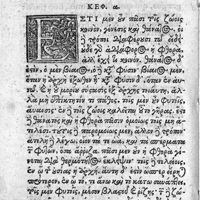 ΚΕΦ. α.
ΕΣΤΙ μὲν οὖν πᾶσι τοῖς ζώοις
κοινὸν, γένεσις καὶ θάνατος. οἱ
δὲ τρόποι διαφέρουσι τῷ εἴδει.
οὐ γὰρ ἀδιάφορος ἡ φθορὰ,
ἀλλ' ἔχει τι κοινόν. θάνατος δ'
ἐστὶν, ὁ μὲν βίαιος, ὁ δὲ κτ φύσιν. βίαιος μὲν,
ὅταν ἡ ἀρχὴ ἔξωθεν ᾖ. κτ φύσιν δ', ὅταν ἐν αὐτῷ.
καὶ ἡ τοῦ μορίου σύστασις ἐξ ἀρχῆς τοιαύτη, ἀλ-
λὰ μὴ ἐπίκτητόν τι πάθος. τοῖς μὲν οὖν φυτοῖς,
αὔανσις. ἐν δὲ τοῖς ζώοις καλεῖται τοῦτο γῆρας. ἔστι
δὲ θάνατος καὶ ἡ φθορὰ πᾶσιν ὁμοίως τοῖς μὴ
ἀτελέσι. τούτοις δὲ παρομοίως μὲν, ἀλλ' ἄλλον
τρόπον. ἀτελῆ δὲ λέγω, οἷον τά τε ᾠὰ καὶ τὰ σπέρματα
τῶν φυτῶν, ὅσα ἄριζα. πᾶσι μὲν οὖν ἡ φθορὰ γί-
νεται διὰ θερμοῦ τινος ἔκλειψιν. τοῖς δὲ τελείοις,
ἐν ᾧ τῆς οὐσίας ἡ ἀρχή. αὕτη δ' ἐστὶν ὥσπερ εἴρη-
ται πρότερον, ἐν ᾧ τό τε ἄνω καὶ τὸ κάτω συνάπτει.
τοῖς μὲν φυτοῖς, μέσον βλαστοῦ καὶ ῥίζης. τῶν δὲ ζώ-